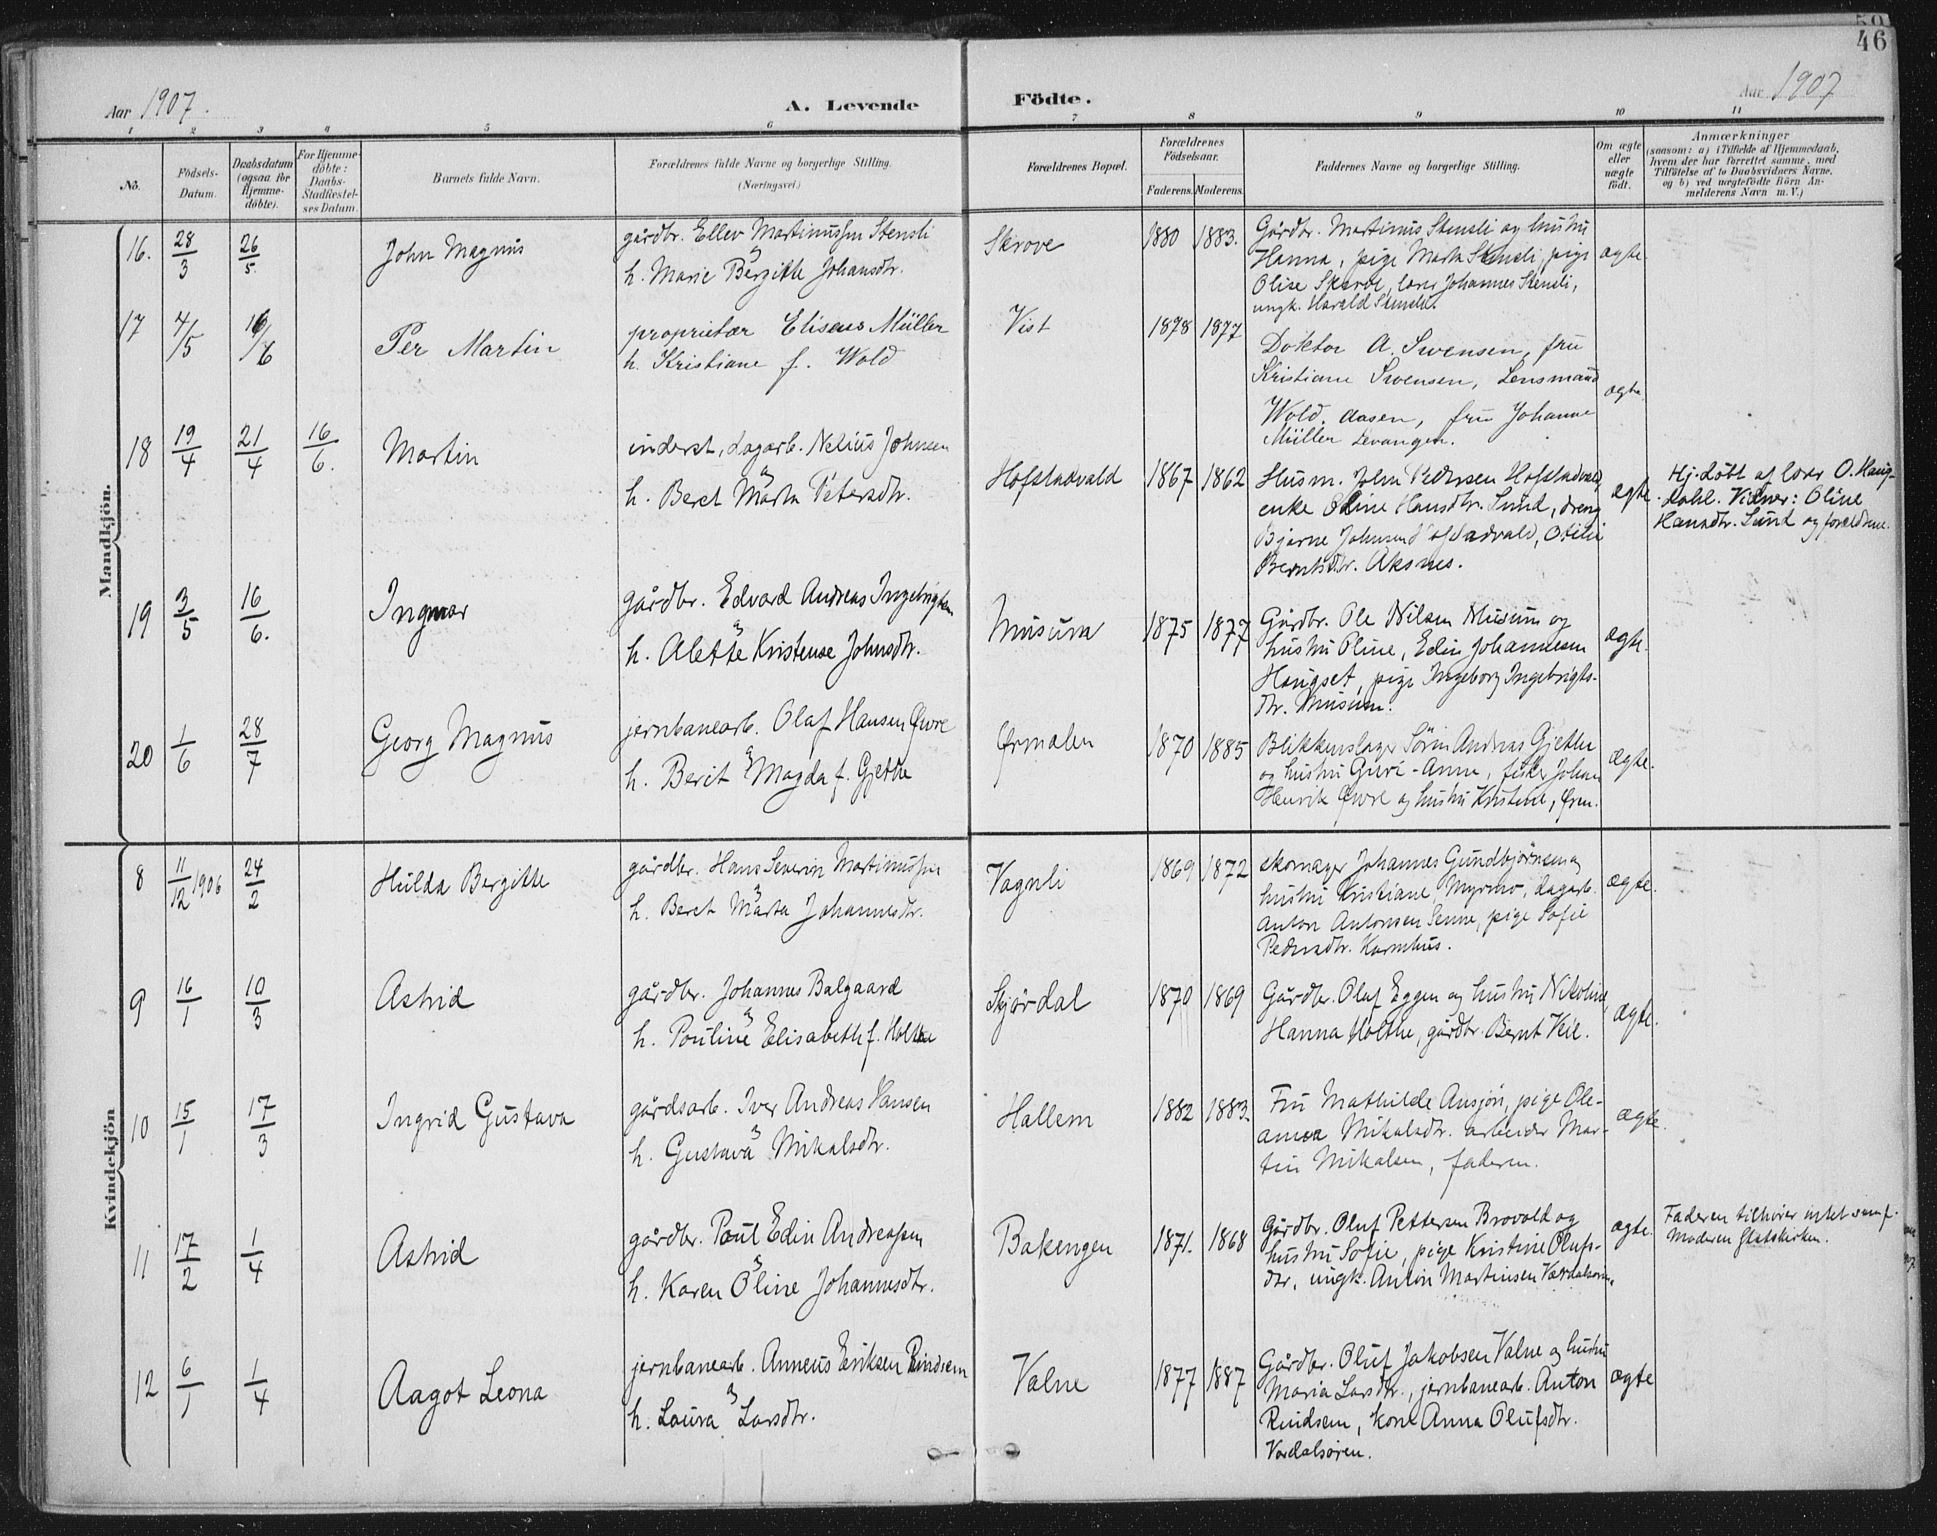 50
46
Aar 1907.
A. Levende
Födte.
Aar 1907
1 2 3 4 5 6 7 8 9 10 11
No.
Födsels-
Datum.
Daabsdatum
(ogsaa for
Hjemme-
döbte).
For Hjemme-
döbte:
Daabs-
Stadfæstel-
ses Datum.
Barnets fulde Navn.
Forældrenes fulde Navne og borgerlige Stilling.
(Næringsvei.)
Forældrenes Bopæl.
Forældrenes
Födselsaar.
Faderens. Moderens.
Faddernes Navne og borgerlige Stilling.
Om ægte
eller
uægte
födt.
Anmærkninger
(saasom: a) i Tilfælde af Hjemmedaab,
hvem der har forrettet samme, med
Tilföielse af to Daabsvidners Navne,
og b) ved uægtefödte Börn An-
melderens Navn m. V.)
Mandkjön.
16. 28/3 26/5 John Magnus
gårdbr. Ellev Martinussen Stensli
&
h. Marie Bergitte Johansdtr.
Skrove 1880 1883.
Gårdbr. Martinus Stensli og hustru
Hanna, pige Marta Stensli, pige
Olise Skrove, lærer Johannes Stensli,
ungk. Harald Stensli.
ægte
17 4/5 16/6 Per Martin
proprietær Eliseus Müller
h. Kristiane f. Wold
Vist 1878 1877
Doktor A. Svensen, fru
Kristiane Svensen, Lensmand
Wold, Aasen, fru Johanne
Müller Levanger.
ægte.
18 19/4 21/4 16/6. Martin
inderst, dagarb. Nelius Johnsen
&
h. Beret Marta Petersdtr.
Hofstadvald 1867 1862
Husm. John Pedersen Hofstadvald,
enke Oline Hansdtr. Sund, dreng
Bjarne Johnsen Hofstadvald, Otilie
Berntsdtr. Aksnes.
ægte.
Hj. døbt af lærer O. Haug-
dahl. Vidner: Oline
Hansdtr. Sund og forældrene.
19 3/5 16/6. Ingmar
gårdbr. Edvard Andreas Ingebrigtsen
&
h. Alette Kristense Johnsdtr.
Musum 1875 1877
Gårdbr. Ole Nilsen Musum og
hustru Oline, Edin Johannesen
Haugset, pige Ingeborg Ingebrigts-
dtr. Musum.
ægte.
20 1/6 28/7 Georg Magnus
jernbanearb. Olaf Hansen Øvre
&
h. Berit Magda f. Gjethe
Ørmelen 1870 1885
Blikkenslager Sørin Andreas Gjethe
og hustru Guri-Anna, fisker Johan
Henrik Øvre og hustru Kristine, Ørm.
ægte.
Kvindekjön
8 11/12 1906 24/2 Hulda Bergitte
gårdbr. Hans Severin Martinussen
&
h. Beret Marta Johannesdtr.
Vagnli 1869 1872
skomager Johannes Gundbjørnsen og
hustru Kristiane Myrmo, dagarb.
Anton Antonsen Senne, pige Sofie
Pedersdtr. Karmhus.
ægte.
9 16/1 10/3 Astrid
gårdbr. Johannes Balgaard
&
h. Pouline Elisabeth f. Holthe
Skjørdal 1870 1869
Gårdbr. Olaf Eggen og hustru Nikoline,
Hanna Holthe, gårdbr. Bernt Veie.
ægte.
10 15/1 17/3 Ingrid Gustava
gårdsarb. Iver Andreas Hansen
&
h. Gustava Mikalsdtr.
Hallem 1882 1883.
Fru Mathilde Ansjøn, pige Ole-
anna Mikalsdtr. arbeider Mar-
tin Mikalsen, faderen.
ægte.
11 17/2 1/4 Astrid
gårdbr. Poul Edin Andreassen
&
h. Karen Oline Johannesdtr.
Bakengen 1871. 1868
Gårdbr. Oluf Pettersen Brovold og
hustru Sofie, pige Kristine Olufs-
dtr, ungk. Anton Martinsen Værdalsøren.
ægte.
Faderen tilhører intet samf.
Moderen statskirken.
12 6/1 1/4 Aagot Leona
jernbanearb. Anneus Eriksen Rindsem
&
h. Laura Larsdtr.
Valne 1877 1887
Gårdbr. Oluf Jakobsen Valne og hustru
Maria Larsdtr., jernbanearb. Anton
Rindsem, kone Anna Olufsdtr.
Værdalsøren.
ægte